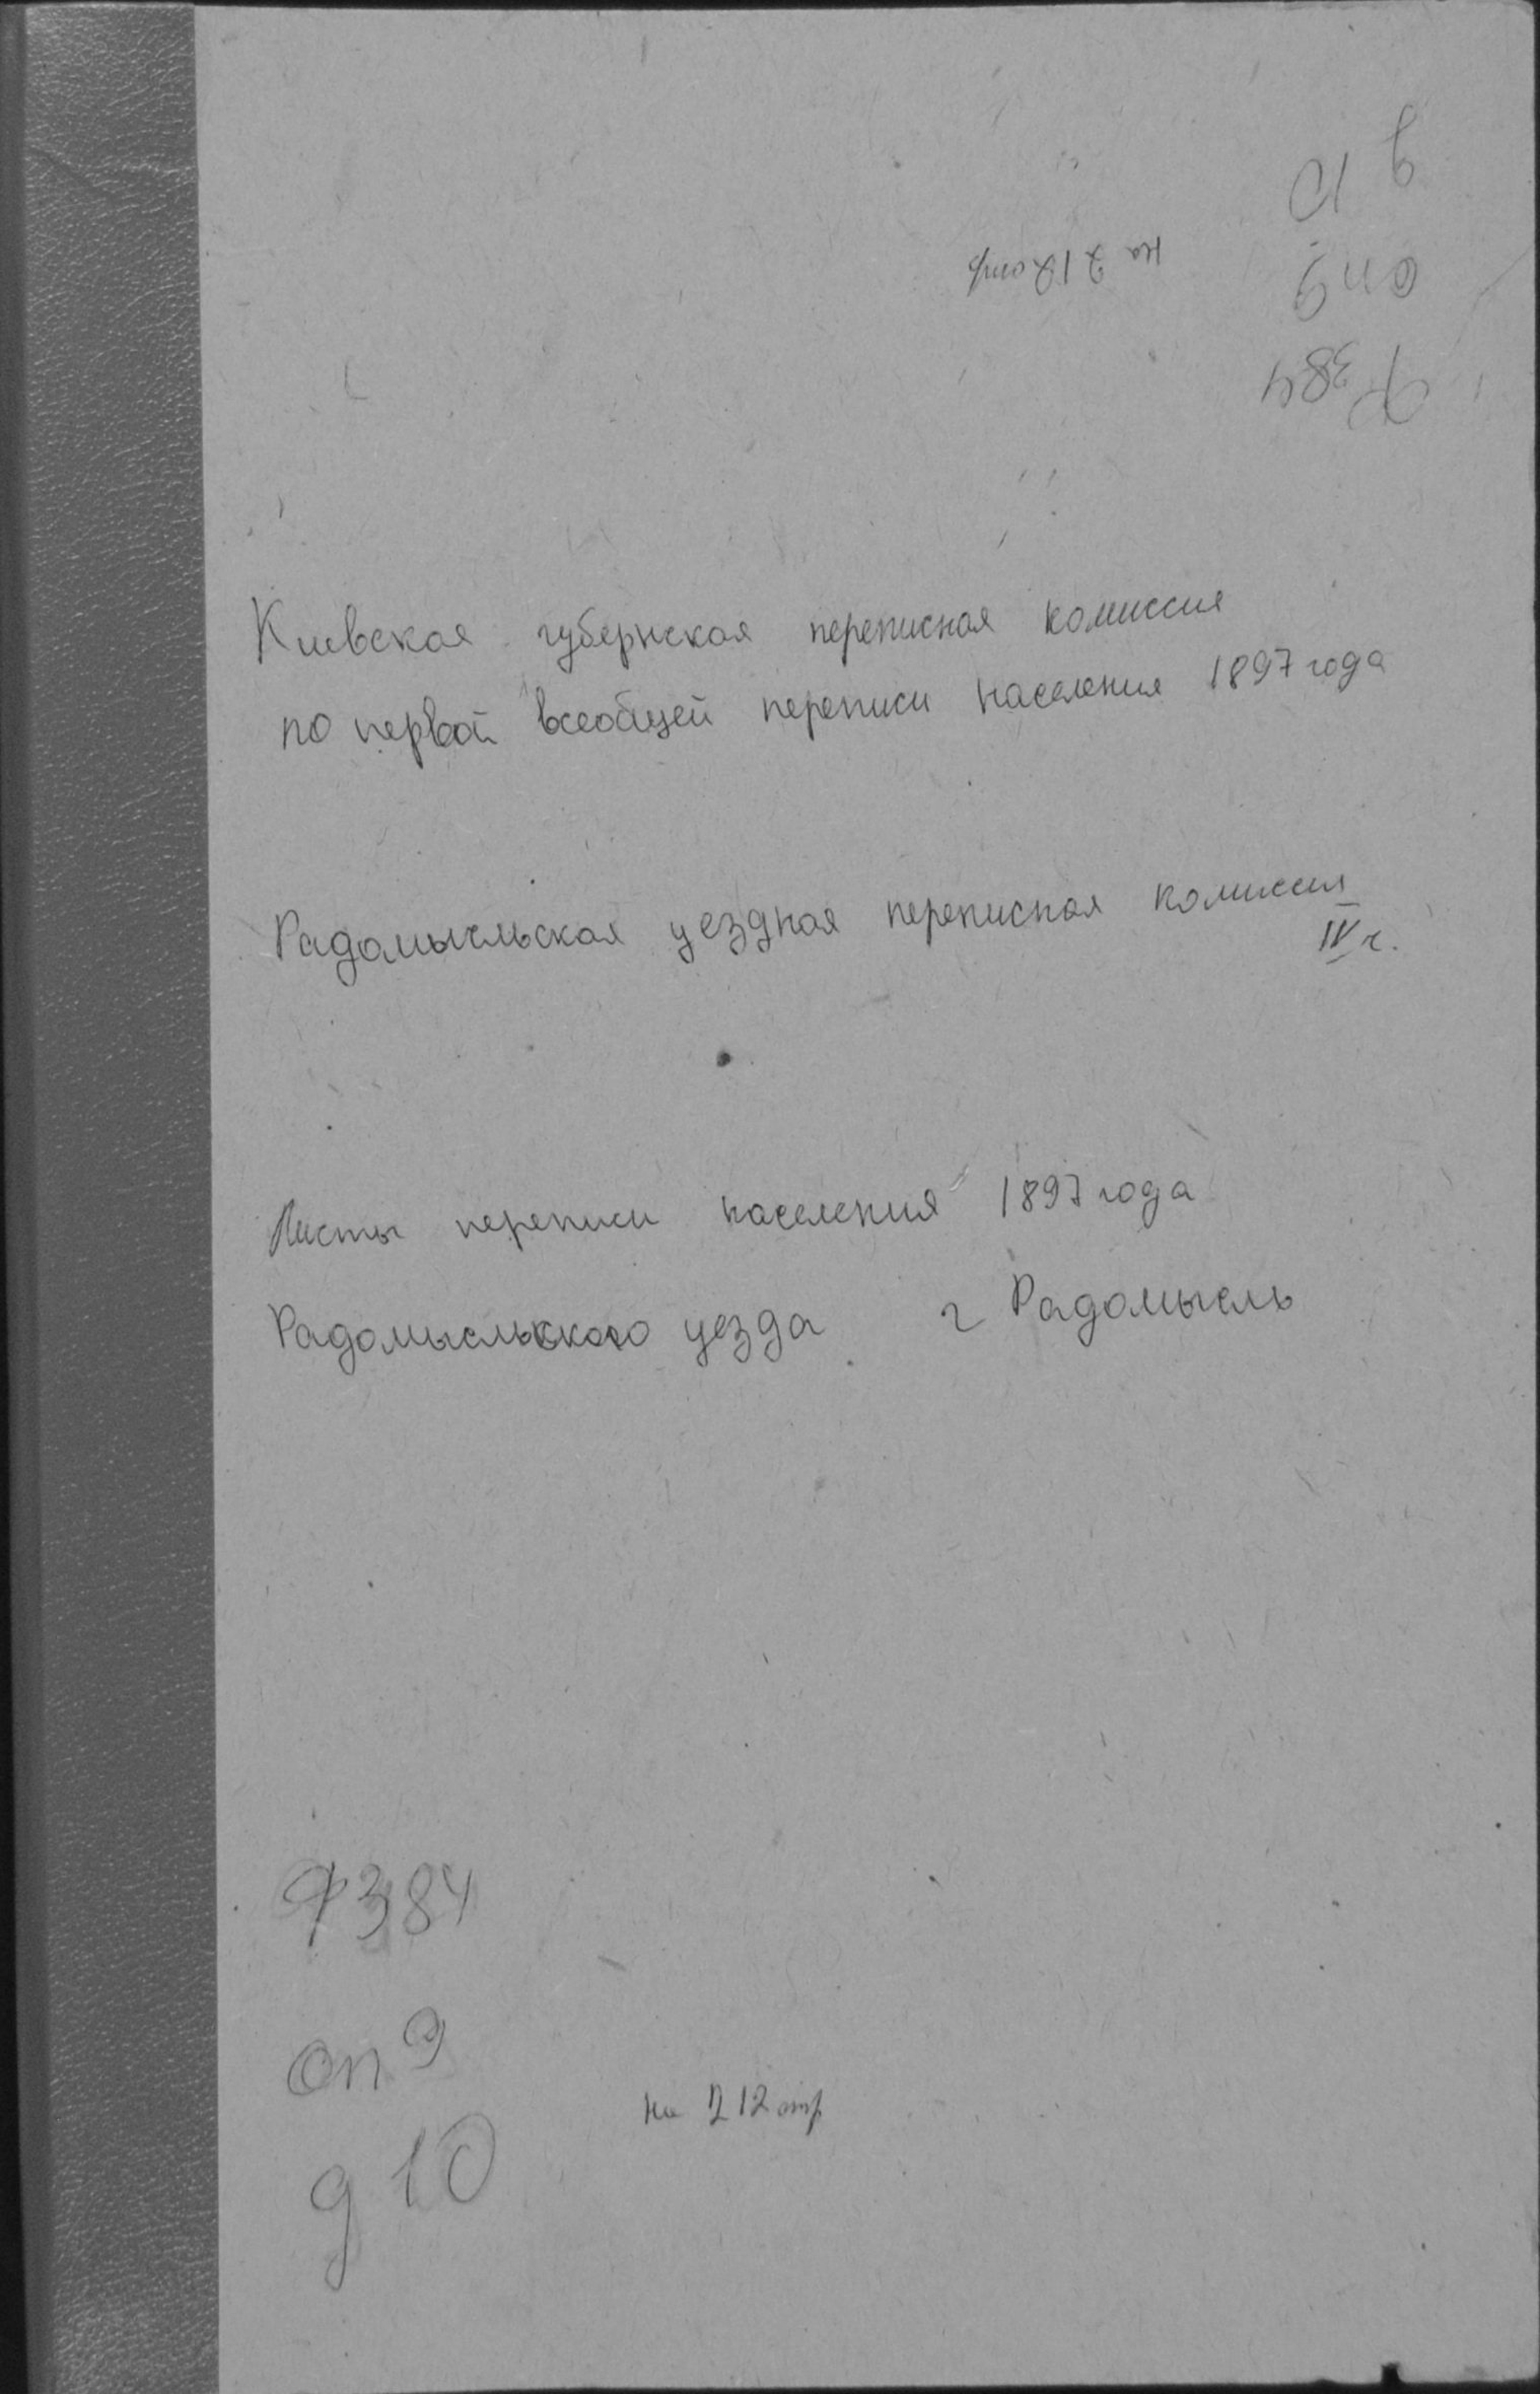 д 10
на 212 стр
оп 9
Ф 384
Киевская губернская переписная комиссия
по первой всеобщей переписи населения 1897 года
Радомысльская уездная переписная комиссия
IV ч.
Листы переписи населения 1897 года
Радомысльского уезда г Радомысль
Ф 384
оп 9
на 212 стр
д 10